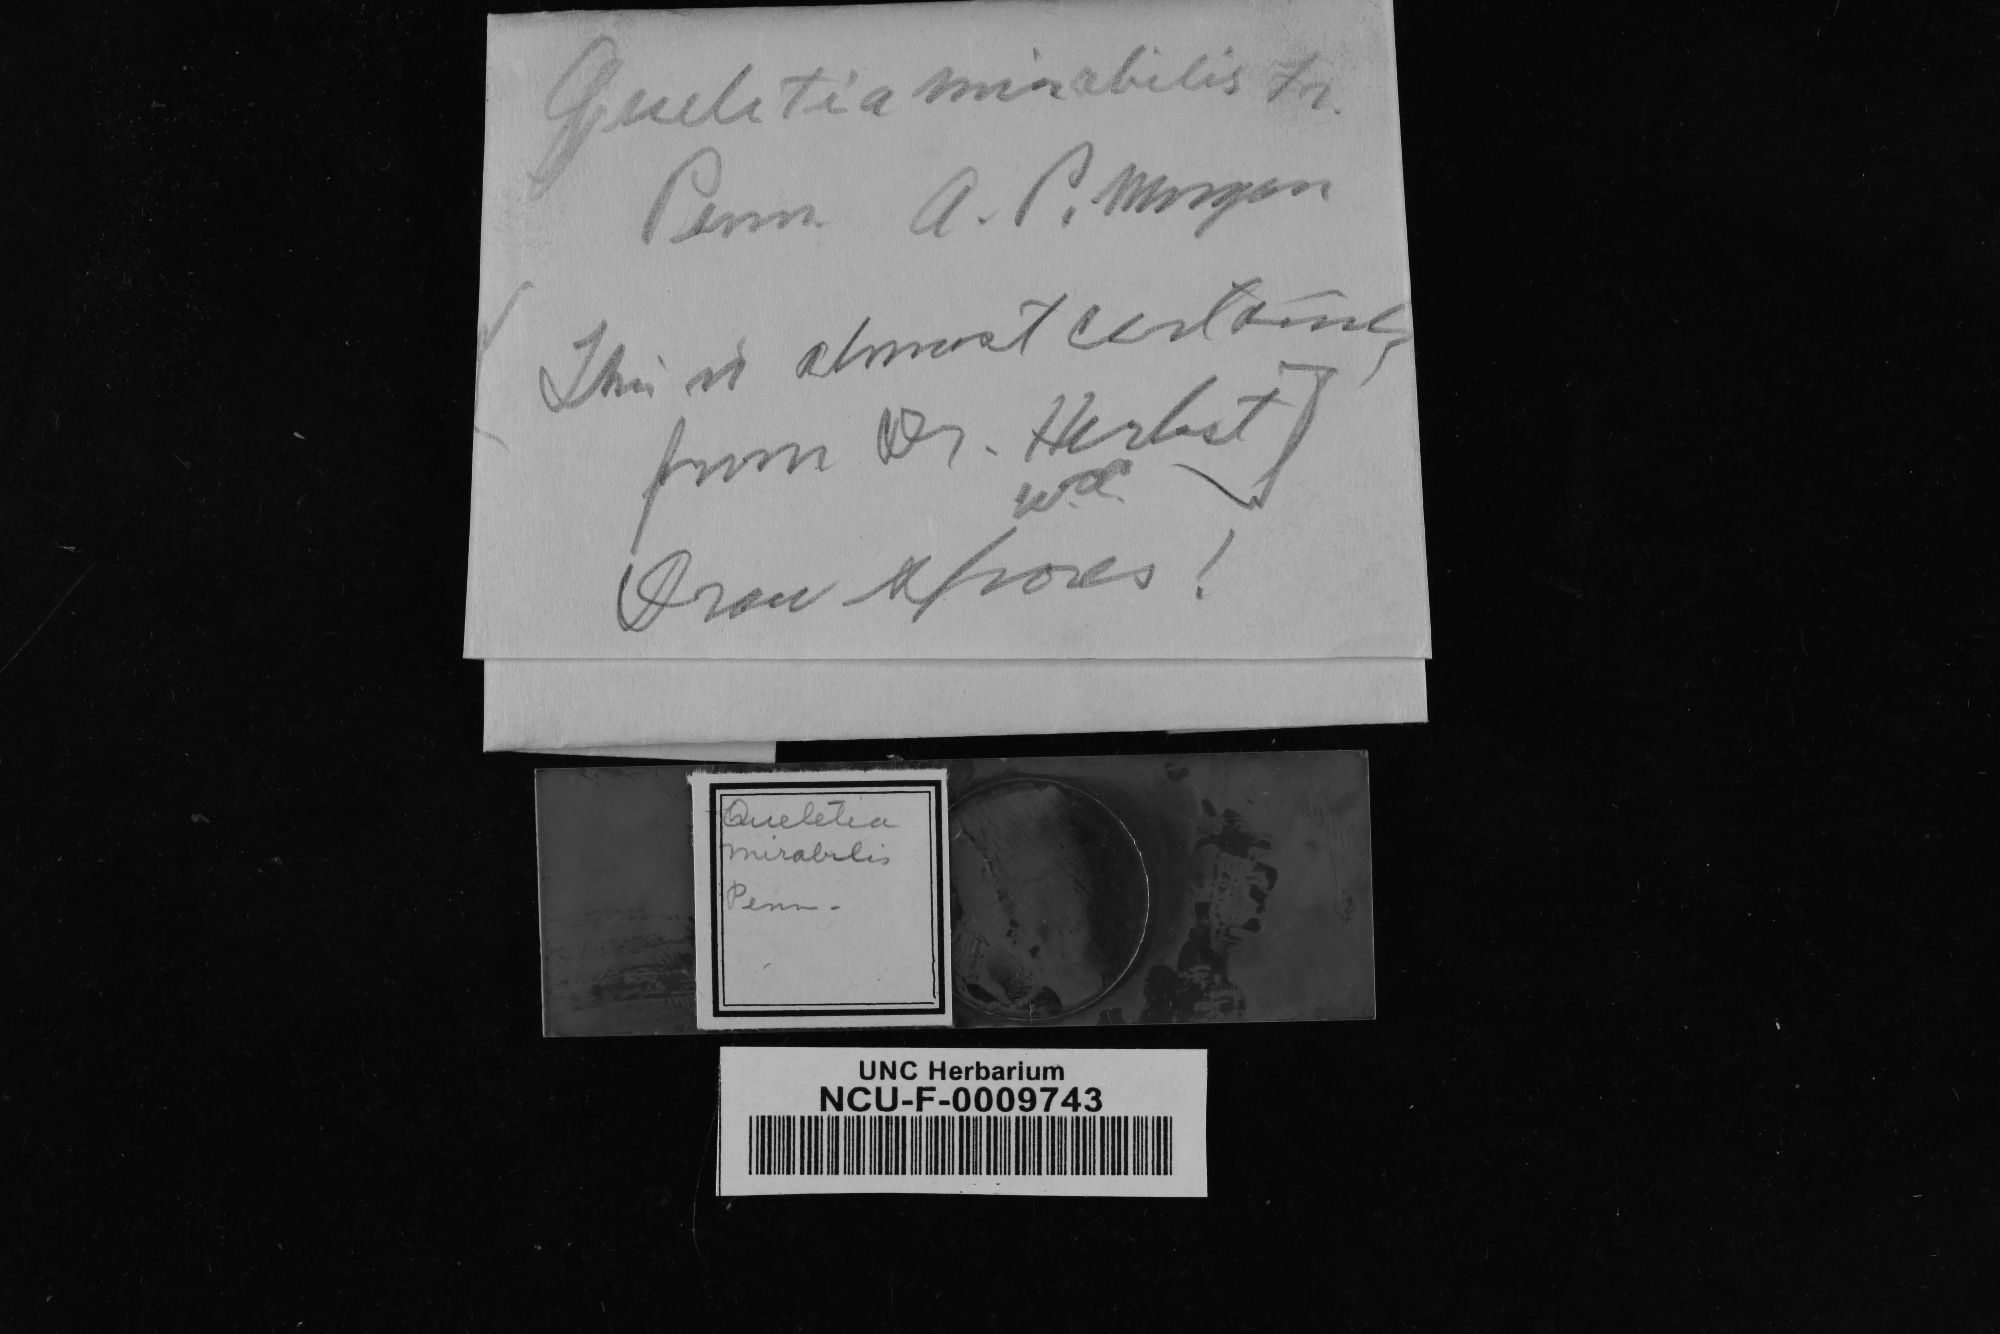 Queletia mirabilis Fr.
Penn. A. P. Morgan
[This is almost certainly
from Dr. Herbst]
WCC
Draw spores!
Queletia
mirabilis
Penn.
UNC Herbarium
NCU-F-0009743